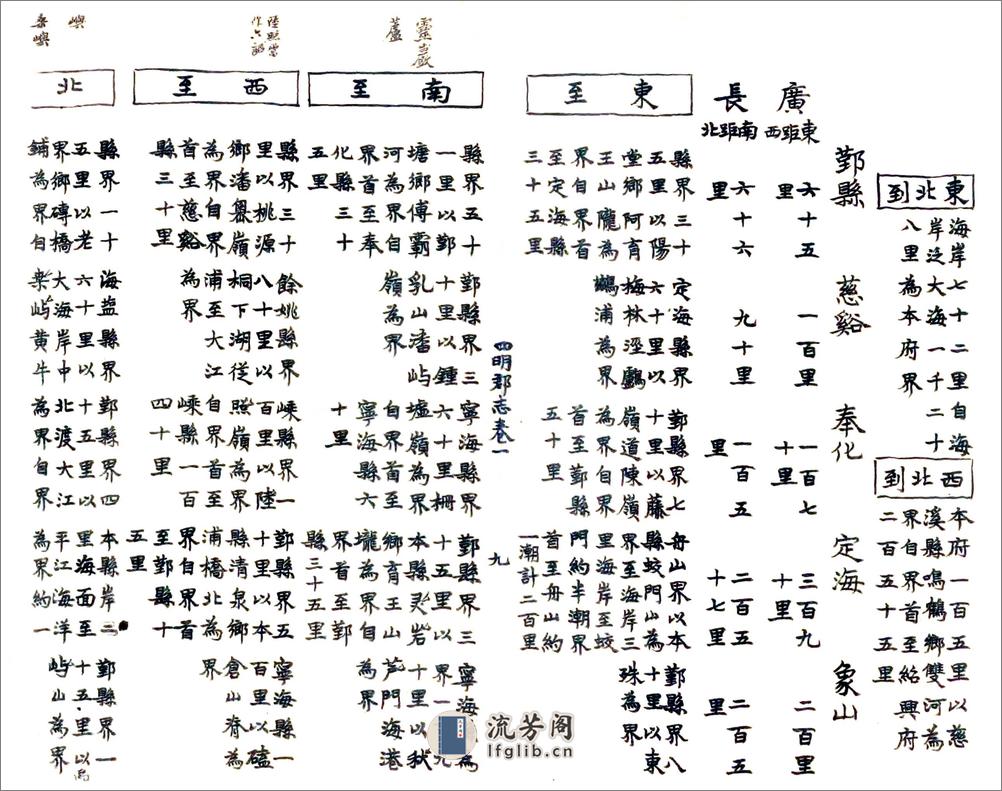 東北到
海岸七十二里自海
岸泛大海一千二十
八里為本府界
西北到
本府一百五里以慈
溪縣鳴鶴鄉雙河為
界自界首至紹興府
二百五十五里
鄞縣 慈谿 奉化 定海 象山
廣
東距西
六十五里 一百里 一百七十里 三百九十里 二百里
長
南距北
六十六里 九十里 一百五里 二百五十七里 二百五里
東至
縣界三十
五里以陽
堂鄉阿育
王山隴為
界自界首
至定海縣
三十五里
定海縣界
六十里以
梅林涇鸕
鷀浦為界
鄞縣界七
十里以藤
嶺道陳嶺
為界自界
首至鄞縣
五十里
舟山界以本
縣蛟門山為
界至海岸三
里海岸至蛟
門約半潮界
首至舟山約
一潮計二百里
鄞縣界八
十里以東
珠為界
四明郡志卷一 九
靈巖
蘆
南至
縣界五十
一里以鄞
塘鄉傅霸
河為界自
界首至奉
化縣三十
五里
鄞縣界三
十里以鍾
乳山潘屿
嶺為界
寧海縣界
六十里柵
墟嶺為界
自界首至
寧海縣六
十里
鄞縣界三
十五里以
本縣灵岩
鄉育王山
壠為界自
界首至鄞
縣三十五里
寧海 為
界一 九
十里以狱
芦門海港
為界
陸照當
作六詔
西至
縣界三十
里以桃源
鄉潘嶴嶺
為界自界
首至慈谿
縣三十里
餘姚縣界
八十里以
桐下湖從
浦至大江
為界
嵊縣界一
百里以陸
照嶺為界
自界首至
嵊縣一百
四十里
鄞縣界五
十里以本
縣清泉鄉
浦橋北為
界自界首
至鄞縣十
五里
寧海縣一
百里以磕
倉山脊為
界
嶼
桑嶼
北
縣界一十
五里以老
界鄉磚橋
鋪為界自
海盐縣界
六十里以
大海岸中
栾屿黄牛
鄞縣界四
十五里以
北渡大江
為界自界
本縣岸二
里海面至
平江海洋
為界約一
鄞縣界一
十五里以
屿山為界
流芳阁
lfglib.cn